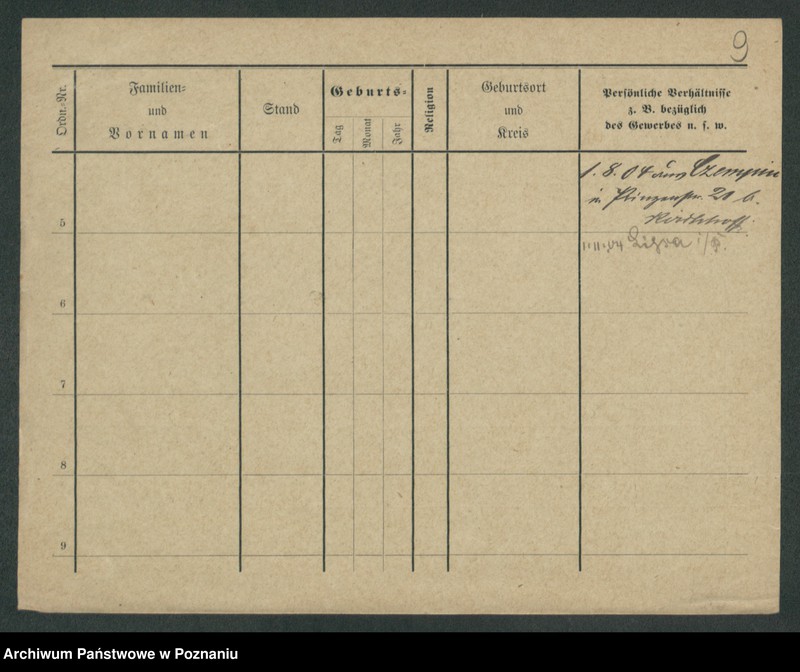 9
Ordn.-Nr.
Familien-
und
Vornamen
Stand
Geburts-
Tag
Monat
Jahr
Religion
Geburtsort
und
Kreis
Persönliche Verhältnisse
z. B. bezüglich
des Gewerbes u. s. w.
1. 8. 04 aus Czempin
in Prinzenstr. 20 b.
Kirchhoff.
5
1.11.04
6
7
8
9
Archiwum Państwowe w Poznaniu